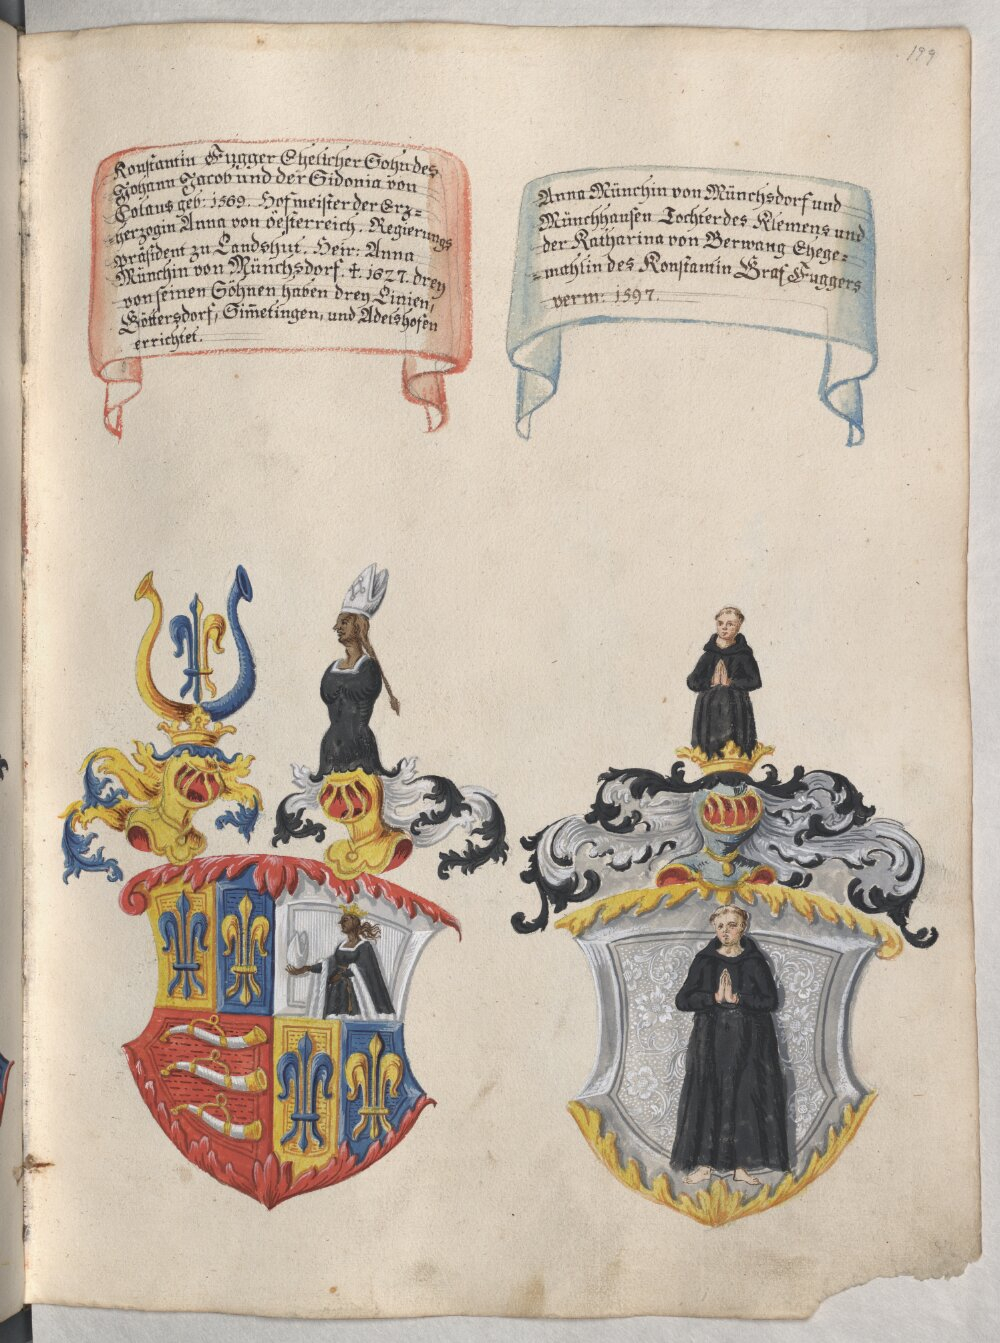 199
Konstantin Fugger Ehelicher Sohn des
Johann Jacob und der Sidonia von
Colaus geb: 1569. Hofmeister der Erz=
=herzogin Anna von Oesterreich. Regierungs
präsident zu Landshut. Heir: Anna
Münchin von Münchsdorf. †. 1627. drey
von seinen Söhnen haben drey Linien,
Göttersdorf, Sim̅etingen, und Adelshofen
errichtet.
Anna Münchin von Münchsdorf und
Münchhausen Tochter des Klemens und
der Katharina von Berwang Ehege=
=mahlin des Konstantin Graf Fuggers
verm: 1597.